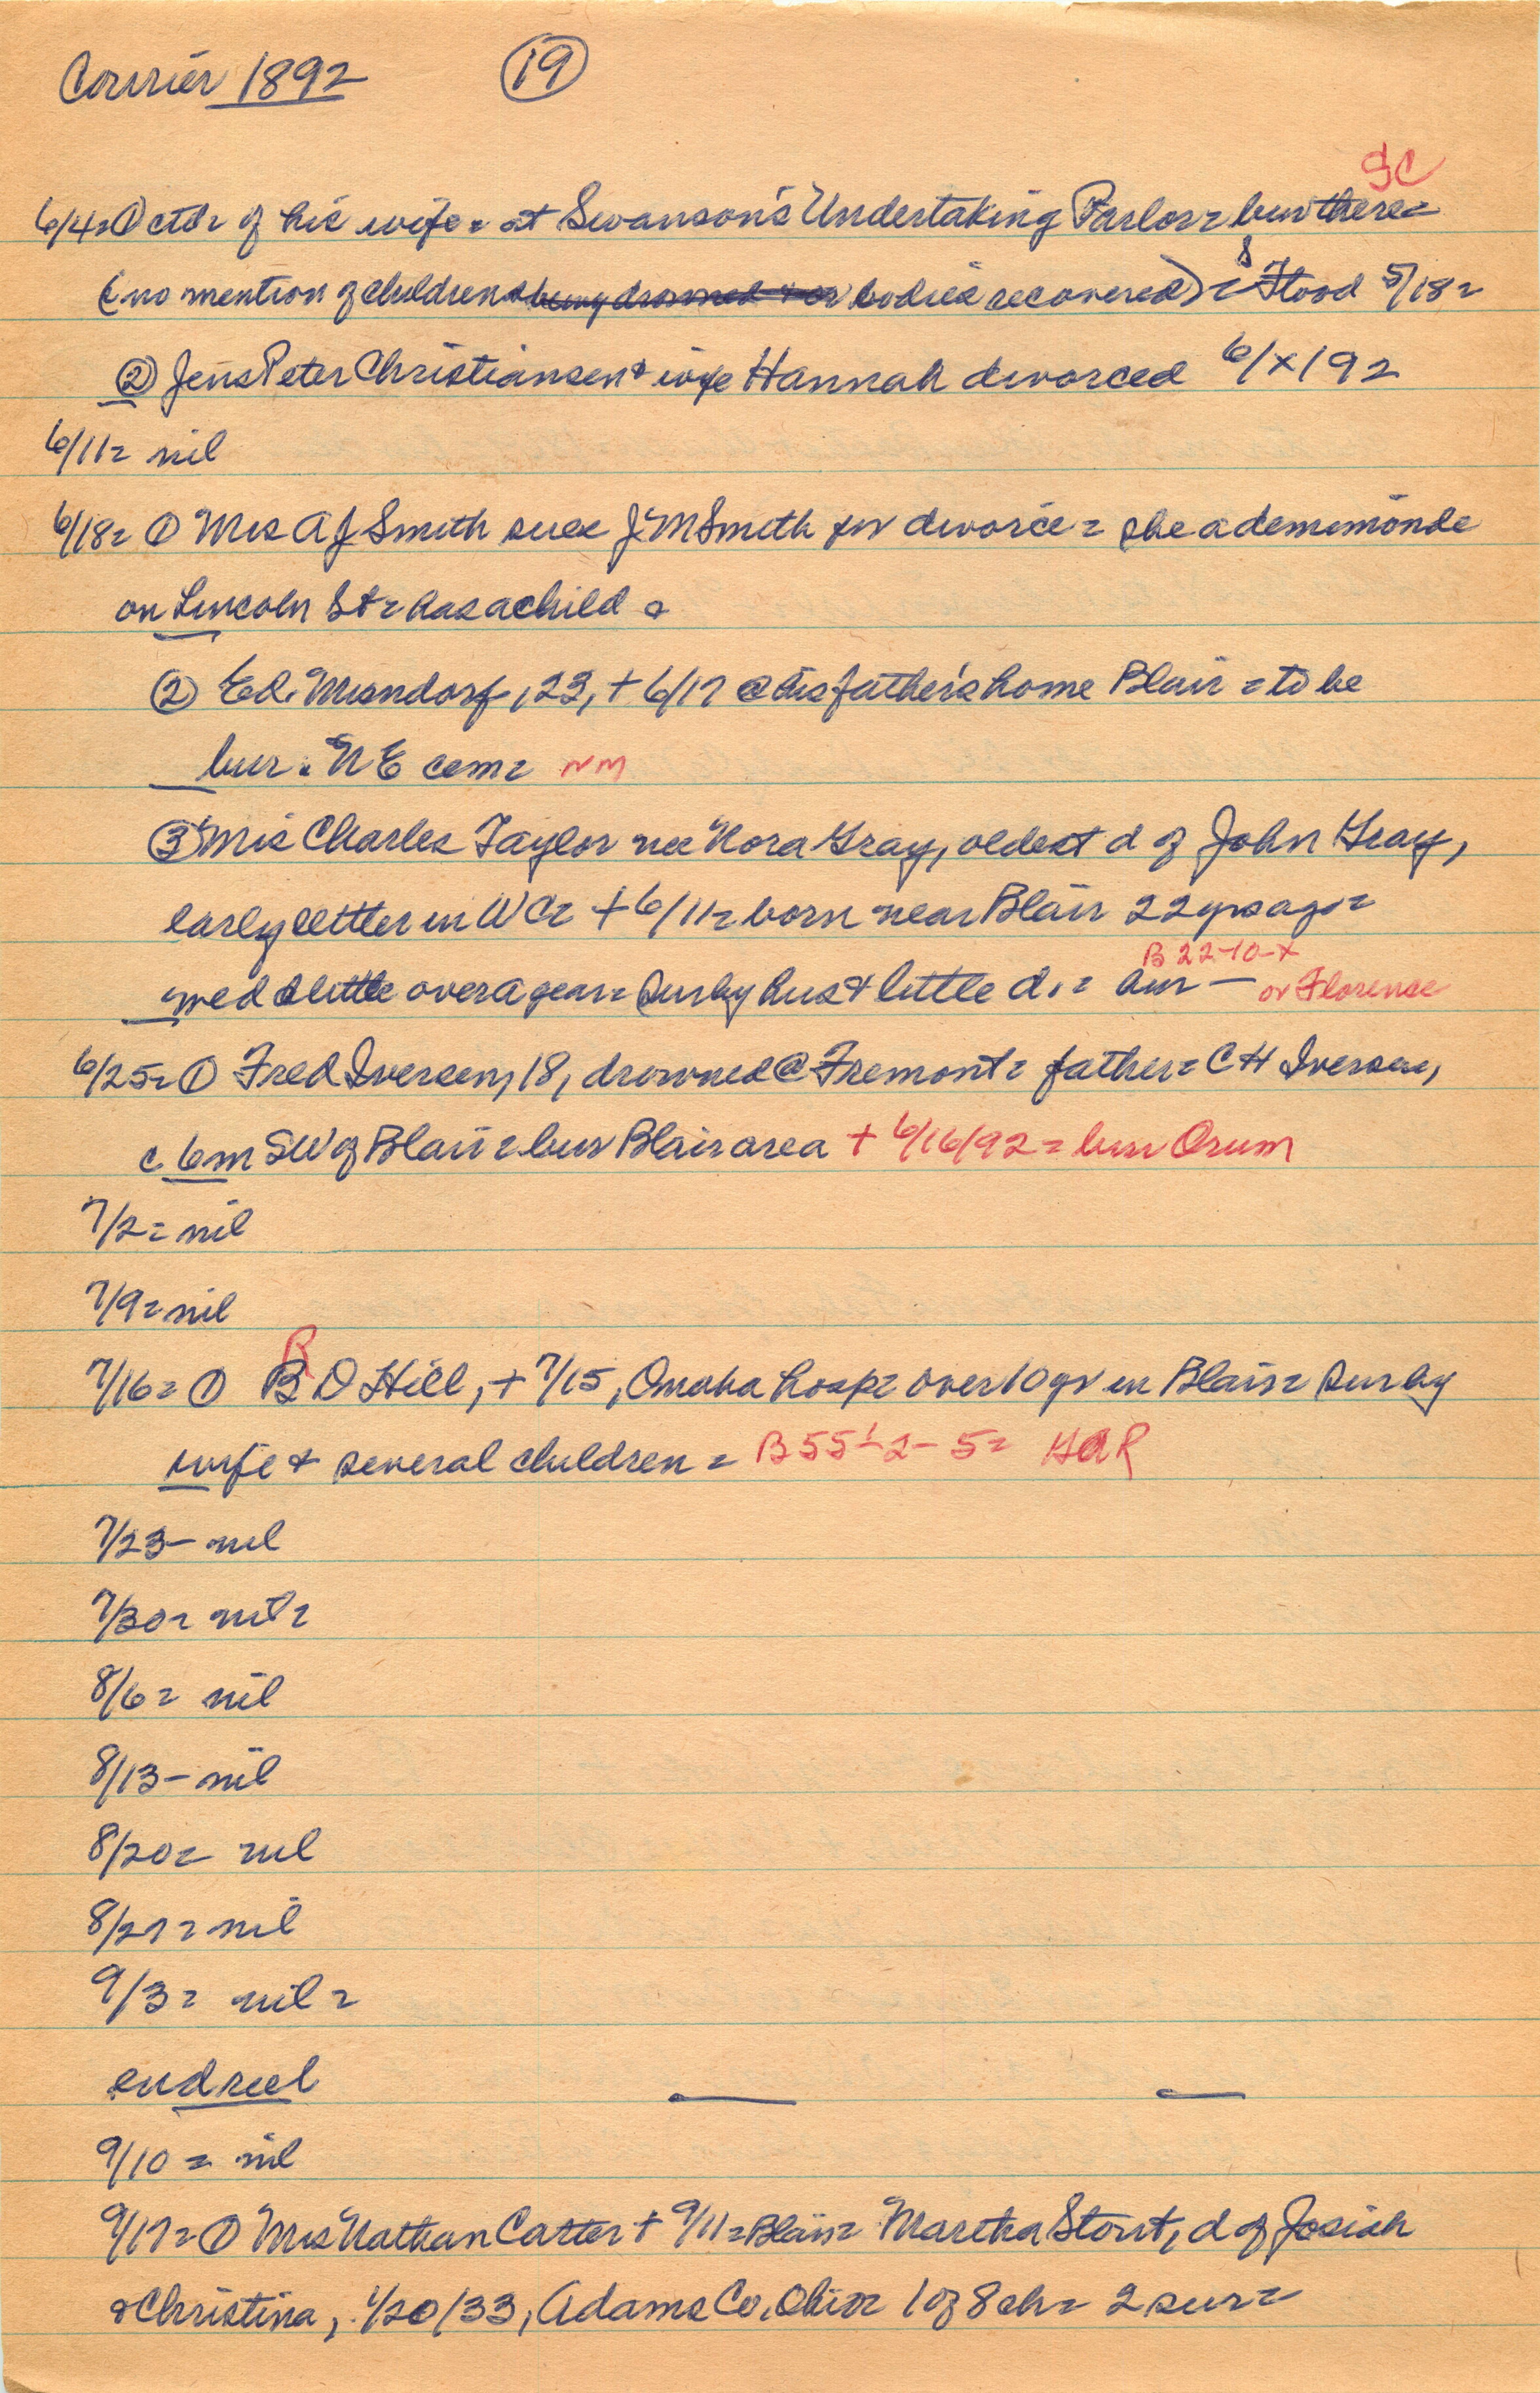 Courier 1892 19
GC
6/4= ① ctd= of his wife = at Swanson's Undertaking Parlor = bur there =
(no mention of children & being drowned & or bodies recovered) = Flood 5/18 =
② Jens Peter Christiansen & wife Hannah divorced 6/x/92
6/11= nil
6/18= ① Mrs A J Smith sues J M Smith for divorce = she a demimonde
on Lincoln St = has a child =
② Ed. Mundorf, 23, + 6/17 @ his father's home Blair = to be
bur. N E cem = NM
③ Mrs Charles Taylor nee Nora Gray, oldest d of John Gray,
early settler in WC = + 6/11 = born near Blair 22 yrs ago =
B 22-10-x
med a little over a year = sur by hus & little d. = bur — or Florence
6/25= ① Fred Iversen, 18, drowned @ Fremont = father = C H Iversen,
c. 6m SW of Blair = bur Blair area + 6/16/92 = bur Orum
7/2= nil
7/9= nil
R
7/16= ① B D Hill, + 7/15, Omaha hosp = over 10 yr in Blair = sur by
wife & several children = B 55-2-5 = HAR
7/23- nil
7/30= nil =
8/6= nil
8/13- nil
8/20= nil
8/27= nil
9/3= nil =
end reel
9/10 = nil
9/17= ① Mrs Nathan Carter + 9/11 = Blair = Martha Stout, d of Josiah
& Christina, 1/20/33, Adams Co, Ohio = 1 of 8 ch = 2 sur =